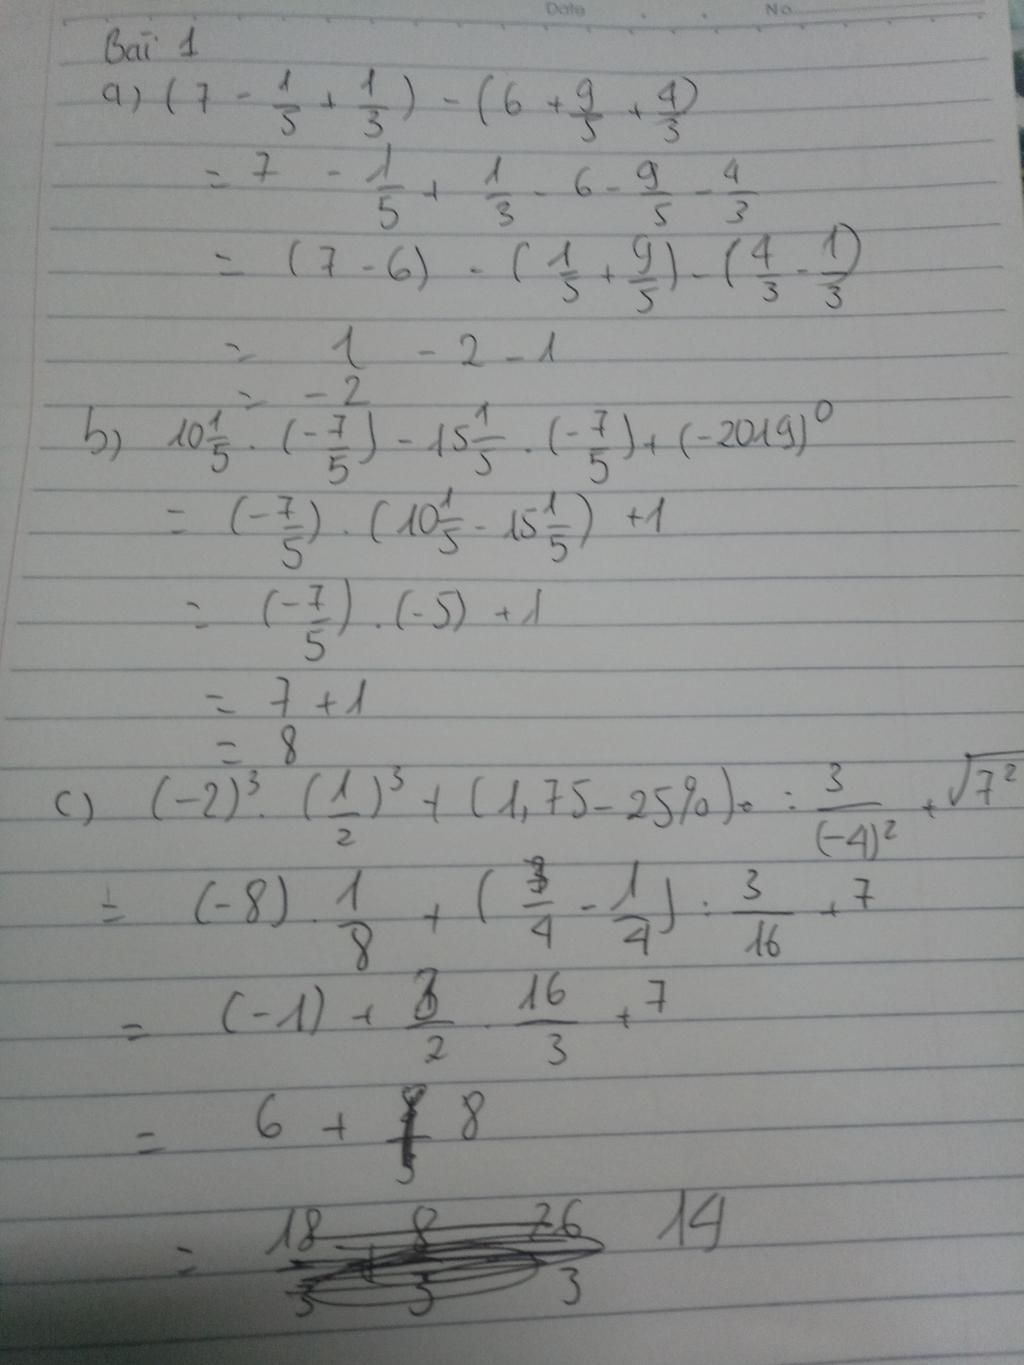 Date No.
Bài 1
a) (7 - 1/5 + 1/3) - (6 + 9/5 + 4/3)
= 7 - 1/5 + 1/3 - 6 - 9/5 - 4/3
= (7 - 6) - (1/5 + 9/5) - (4/3 - 1/3)
= 1 - 2 - 1
= - 2
b) 10 1/5 . (-7/5) - 15 1/5 . (-7/5) + (-2019)^0
= (-7/5) . (10 1/5 - 15 1/5) + 1
= (-7/5) . (-5) + 1
= 7 + 1
= 8
c) (-2)^3 . (1/2)^3 + (1,75 - 25%) : 3/(-4)^2 + √7^2
= (-8) . 1/8 + (/4 - 1/4) : 3/16 + 7
= (-1) + 3/2 . 16/3 + 7
= 6 + 8
= 14